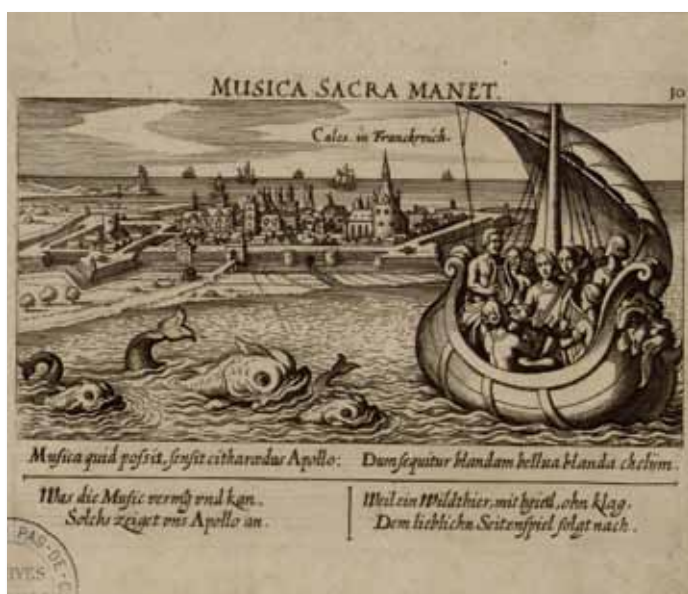 MUSICA SACRA MANET. 30
Cales in Franckreich.
Musica quid possit, sensit citharœdus Apollo: Dum sequitur blandam bellua blanda chelim.
Was die Music vermag vnd kan.
Solchs zeiget vns Apollo an.
Weil ein Wildthier, mit ohn klag.
Dem lieblichn Seitenspiel folgt nach.
PAS-DE-C
IVES